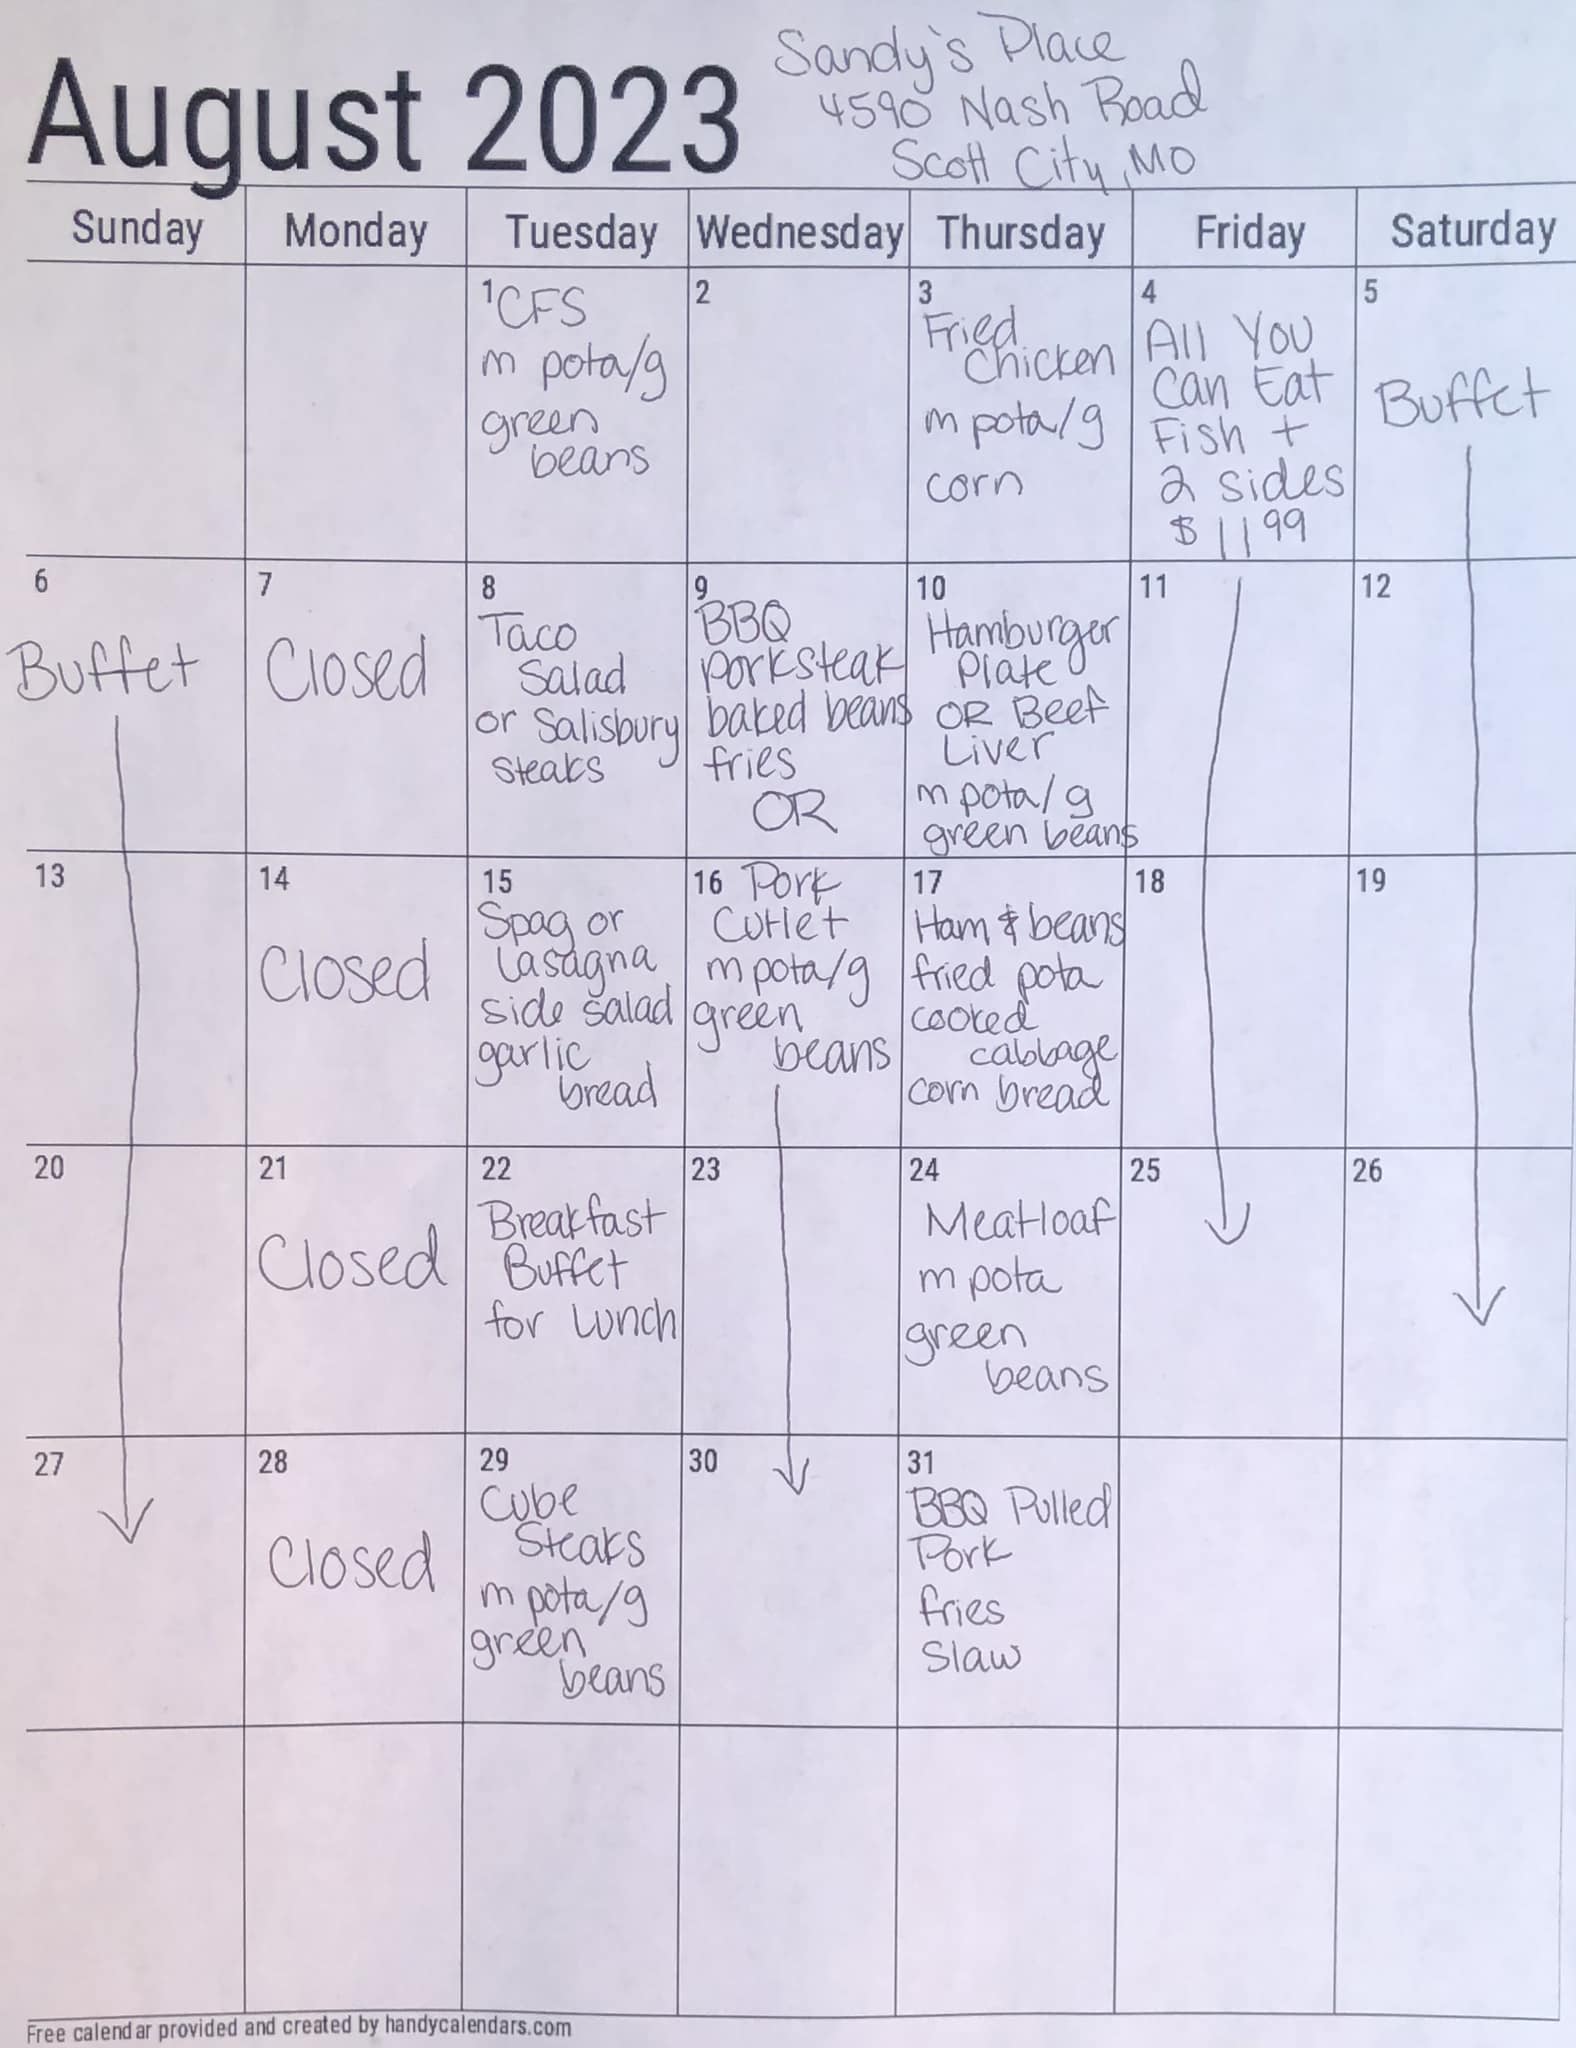 August 2023
Sandy's Place
4590 Nash Road
Scott City, MO
Sunday Monday Tuesday Wednesday Thursday Friday Saturday
1 CFS
m pota/g
green
beans
2
3
Fried
Chicken
m pota/g
corn
4
All You
Can Eat
Fish +
2 sides
$11 99
5
Buffet
6
Buffet
7
Closed
8
Taco
Salad
or Salisbury
steaks
9
BBQ
porksteak
baked beans
fries
OR
10
Hamburger
Plate
OR Beef
Liver
m pota/g
green beans
11
12
13
14
Closed
15
Spag or
Lasagna
side salad
garlic
bread
16 Pork
Cutlet
m pota/g
green
beans
17
Ham & beans
fried pota
cooked
cabbage
corn bread
18
19
20
21
Closed
22
Breakfast
Buffet
for Lunch
23
24
Meatloaf
m pota
green
beans
25
26
27
28
Closed
29
Cube
Steaks
m pota/g
green
beans
30
31
BBQ Pulled
Pork
fries
Slaw
Free calendar provided and created by handycalendars.com